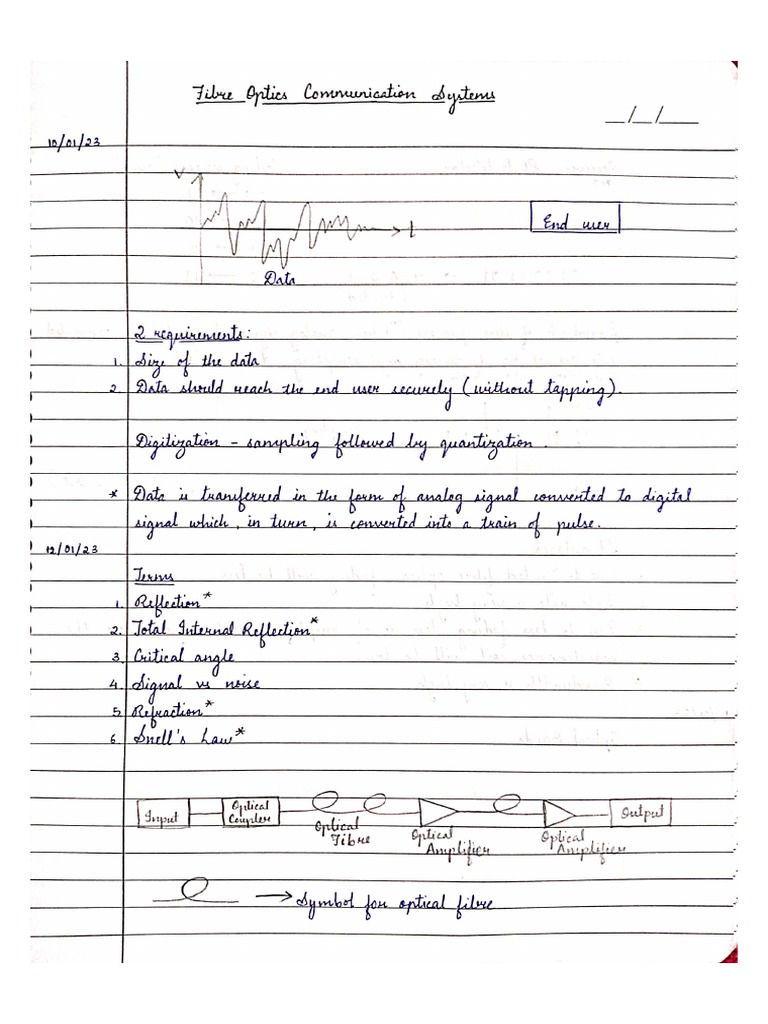 Fibre Optics Communication Systems
_/_/__
10/01/23
V
t
End user
Data
2 requirements:
1. Size of the data
2. Data should reach the end user securely (without tapping).
Digitization - sampling followed by quantization.
* Data is tranferred in the form of analog signal converted to digital
signal which, in turn, is converted into a train of pulse.
12/01/23
Terms
1. Reflection*
2. Total Internal Reflection*
3. Critical angle
4. Signal vs noise
5. Refraction*
6. Snell's Law*
Input
Optical
Coupler
Optical
Fibre
Optical
Amplifier
Optical
Amplifier
Output
→ Symbol for optical fibre